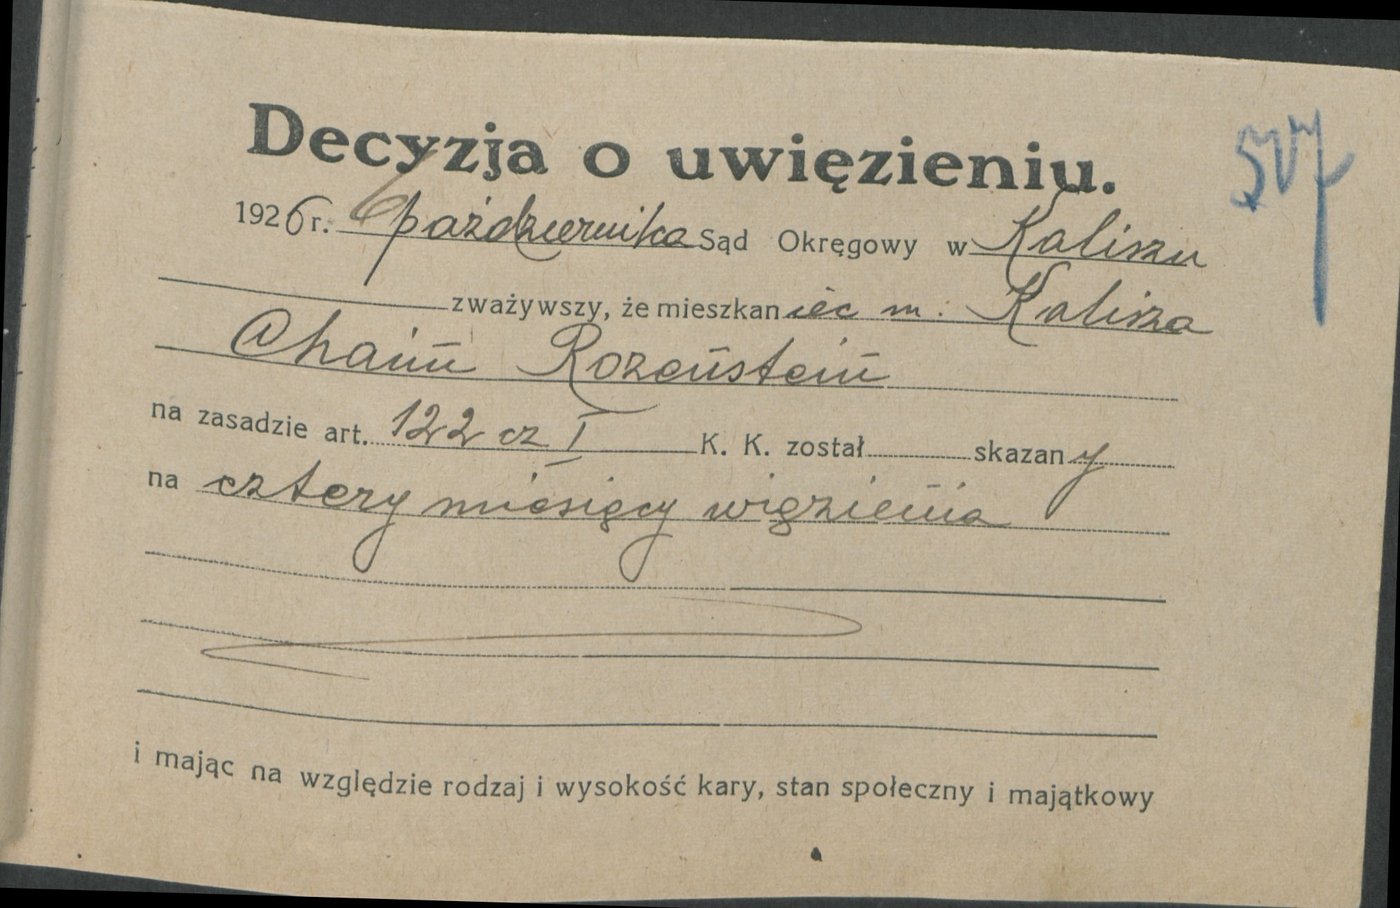 Decyzja o uwięzieniu.
507
1926 r. 6 października Sąd Okręgowy w Kaliszu
zważywszy, że mieszkaniec m. Kalisza
Chaim Rozensztein
na zasadzie art. 122 cz I K. K. został skazany
na cztery miesięcy więzienia
i mając na względzie rodzaj i wysokość kary, stan społeczny i majątkowy